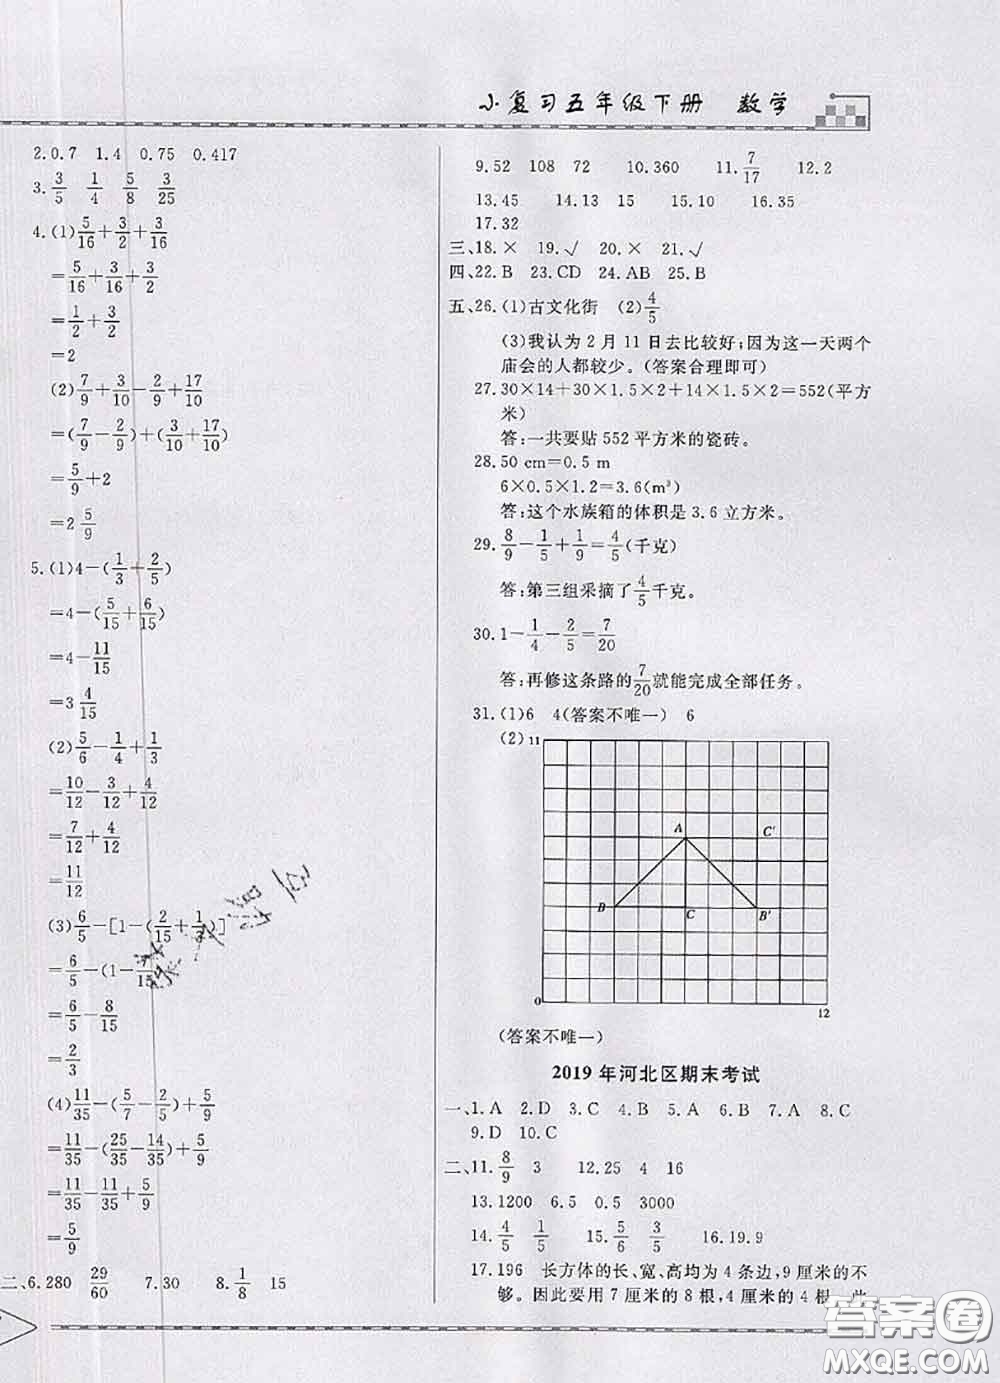 小复习五年级下册 数学
2.0.7 1.4 0.75 0.417
3. 3/5 1/4 5/8 3/25
4.(1) 5/16+3/2+3/16
=5/16+3/16+3/2
=1/2+3/2
=2
(2) 7/9+3/10-2/9+17/10
=(7/9-2/9)+(3/10+17/10)
=5/9+2
=2 5/9
5.(1)4-(1/3+2/5)
=4-(5/15+6/15)
=4-11/15
=3 4/15
(2) 5/6-1/4+1/3
=10/12-3/12+4/12
=7/12+4/12
=11/12
(3) 6/5-[1-(2/15+1/3)]
=6/5-(1-7/15
=6/5-8/15
=2/3
(4) 11/35-(5/7-2/5)+5/9
=11/35-(25/35-14/35)+5/9
=11/35-11/35+5/9
=5/9
二、6.280 29/60 7.30 8. 1/8 15
9.52 108 72 10.360 11. 7/17 12.2
13.45 14.13 15 15.10 16.35
17.32
三、18.× 19.√ 20.× 21.√
四、22.B 23.CD 24.AB 25.B
五、26.(1)古文化街 (2) 4/5
(3)我认为2月11日去比较好;因为这一天两个
庙会的人都较少。(答案合理即可)
27.30×14+30×1.5×2+14×1.5×2=552(平方
米)
答:一共要贴552平方米的瓷砖。
28.50 cm=0.5 m
6×0.5×1.2=3.6(m³)
答:这个水族箱的体积是3.6立方米。
29. 8/9-1/5+1/9=4/5(千克)
答:第三组采摘了4/5千克。
30.1-1/4-2/5=7/20
答:再修这条路的7/20就能完成全部任务。
31.(1)6 4(答案不唯一) 6
(2)
11
A C′
B C B′
0
12
(答案不唯一)
2019年河北区期末考试
一、1.A 2.D 3.C 4.B 5.A 6.B 7.A 8.C
9.D 10.C
二、11. 8/9 3 12.25 4 16
13.1200 6.5 0.5 3000
14. 4/5 1/5 15. 5/6 3/5 16.19.9
17.196 长方体的长、宽、高均为4条边,9厘米的不
够。因此要用7厘米的8根,4厘米的4根,此
答案卷
MXQE.COM